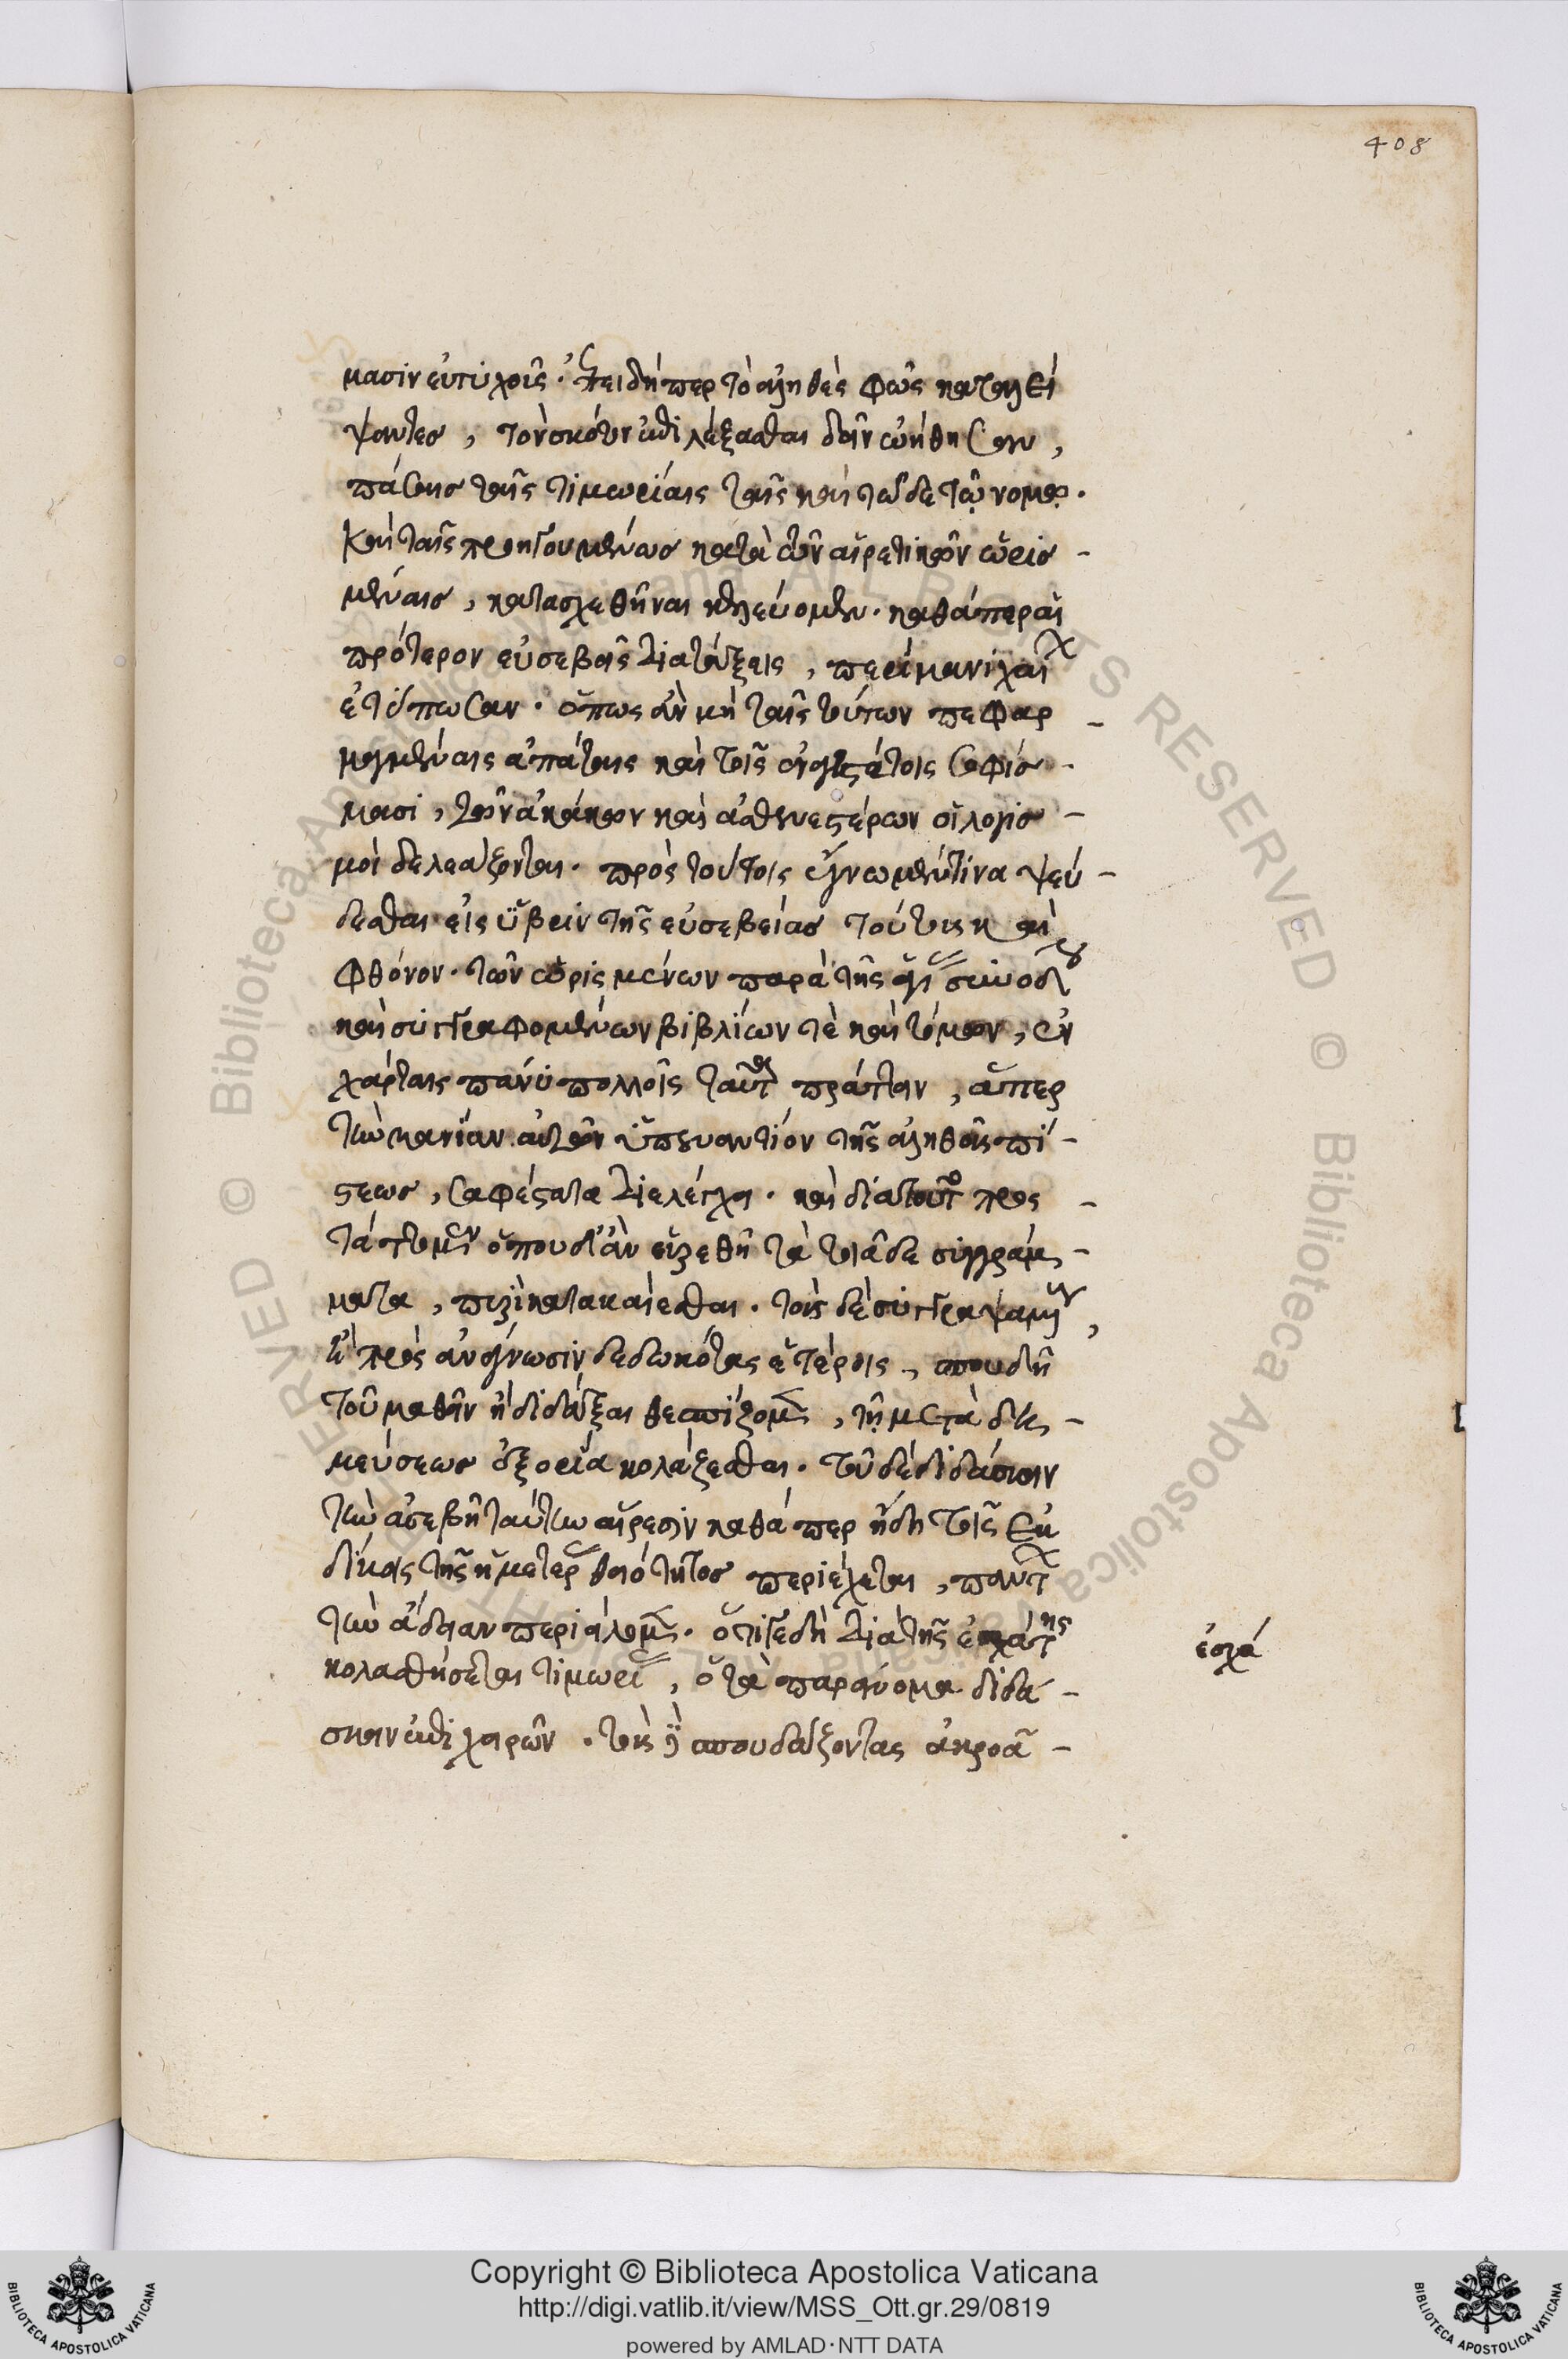 408
μασιν ἐντύχοις. ἐπειδήπερ τὸ ἀληθὲς φῶς καταλεί
ψαντες, τὸν σκότον ἐπιλέξασθαι δεῖν ᾠήθησαν,
πάσαις ταῖς τιμωρίαις ταῖς καὶ τῷδε τῷ νόμῳ.
καὶ ταῖς προηγουμένως κατὰ τῶν αἱρετικῶν ὡρισ-
μέναις, κατασχεθῆναι κελεύομεν. καθάπερ αἱ
πρότερον εὐσεβεῖς διατάξεις, περὶ μανιχαί
ἐτύπωσαν. ὅπως ἂν μὴ ταῖς τούτων πεφαρ-
μαγμέναις ἀπάταις καὶ τοῖς ἀνοήτοις σοφίσ-
μασι, τῶν ἀκάκων καὶ ἀσθενεστέρων οἱ λογισ-
μοὶ δελεάζονται. πρὸς τούτοις ἔγνωμεν τινα ψεύ-
δεσθαι εἰς ὕβριν τῆς εὐσεβείας τούτους καὶ
φθόνον. τῶν ὡρισμένων παρὰ τῆς ἁγί συνόδου
καὶ συγγραφομένων βιβλίων τὲ καὶ τόμων, ἐν
χάρταις πάνυ πολλοῖς ταῦτα πράττειν, ἅπερ
τὴν μανίαν αὐτῶν ὑπεναντίον τῆς ἀληθοῦς πί-
στεως, σαφέστατα διελέγχει. καὶ διὰ τοῦτο προσ-
τάττομεν ὅπου δἂν εὑρεθῇ τὰ τοιάδε συγγράμ-
ματα, πυρὶ κατακαίεσθαι. τοὺς δὲ συγγραψαμέν,
ἢ πρὸς ἀνάγνωσιν δεδωκότας ἑτέροις, σπουδῇ
τοῦ μαθεῖν ἢ διδάξαι θεσπίζομεν, τῇ μετὰ δη-
μεύσεως ἐξορία κολάζεσθαι. τοῦ δὲ διδάσκειν
τὴν ἀσεβῆ ταύτην αἵρεσιν καθάπερ ἤδη τοῖς ἐκ
δίκοις τῆς ἡμετέρ θειότητος περιέχεται, παντ
τὴν ἄδειαν περιαιροῦμεν. ὅτι γε δὴ διὰ τῆς ἐσχάτης
κολασθήσεται τιμωρί, ὁ τὰ παράνομα διδά-
σκειν ἐπιχειρῶν. τοὺς δὲ σπουδάζοντας ἀκροᾶ-
ἐσχά
Copyright © Biblioteca Apostolica Vaticana
http://digi.vatlib.it/view/MSS_Ott.gr.29/0819
powered by AMLAD·NTT DATA